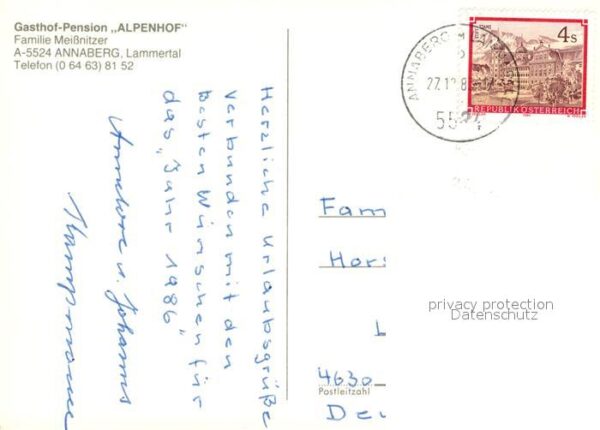 Gasthof-Pension „ALPENHOF"
Familie Meißnitzer
A-5524 ANNABERG, Lammertal
Telefon (0 64 63) 81 52
Herzliche Urlaubsgrüße
verbunden mit den
besten Wünschen für
das „Jahr 1986"
u. Johannes
4 S
REPUBLIK ÖSTERREICH
ANNABERG
5524
Fam
Hor
privacy protection
Datenschutz
4630
Postleitzahl